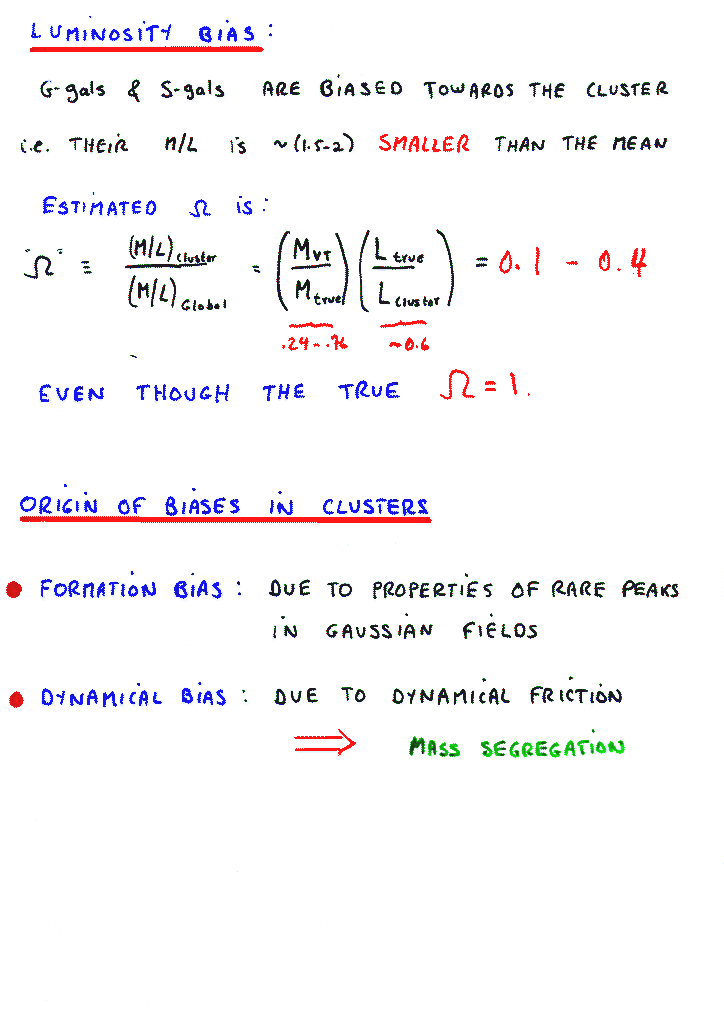 LUMINOSITY BIAS:
G-gals & S-gals ARE BIASED TOWARDS THE CLUSTER
i.e. THEIR M/L is ~(1.5-2) SMALLER THAN THE MEAN
ESTIMATED Ω is:
"Ω" ≡ (M/L)cluster / (M/L)Global = (MVT / Mtrue) (Ltrue / Lcluster) = 0.1 - 0.4
.24-.76 ~0.6
EVEN THOUGH THE TRUE Ω = 1.
ORIGIN OF BIASES IN CLUSTERS
● FORMATION BIAS: DUE TO PROPERTIES OF RARE PEAKS
IN GAUSSIAN FIELDS
● DYNAMICAL BIAS: DUE TO DYNAMICAL FRICTION
⇒ MASS SEGREGATION